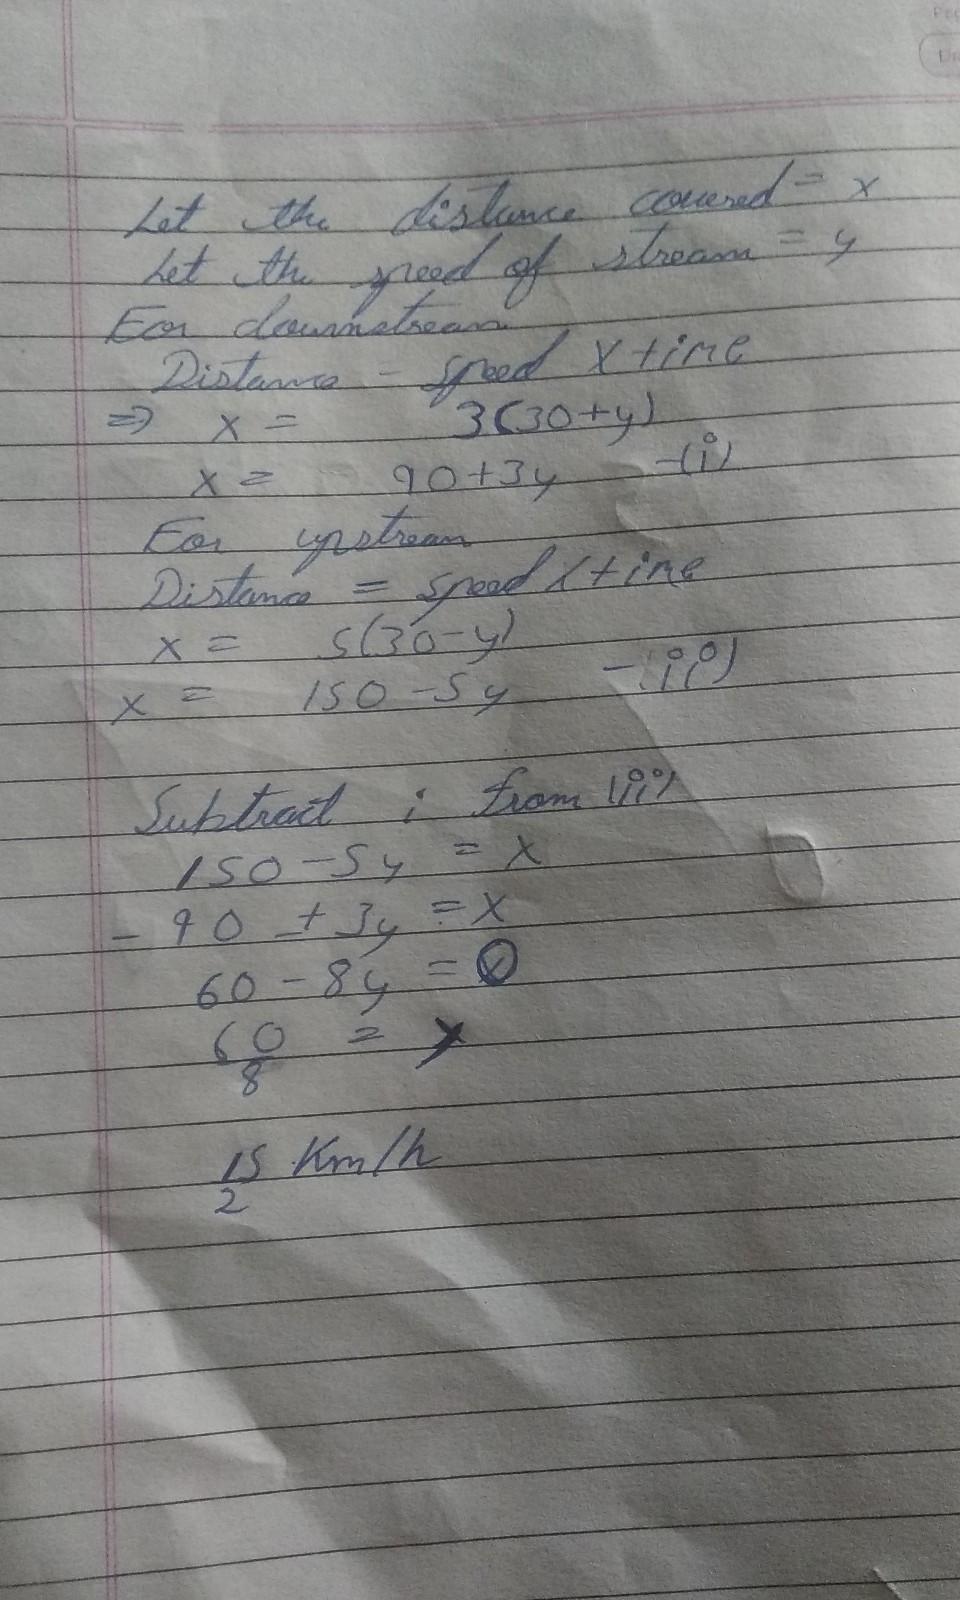 Let the distance covered = x
Let the speed of stream = y
For downstream
Distance - speed X time
⇒ x = 3(30+y)
x = 90+3y -(i)
For upstream
Distance = speed x time
x = 5(30-y)
x = 150-5y -(ii)
Subtract i from (ii)
150-5y = x
- 90 + 3y = x
60-8y = 0
60/8 = y
15/2 Km/h